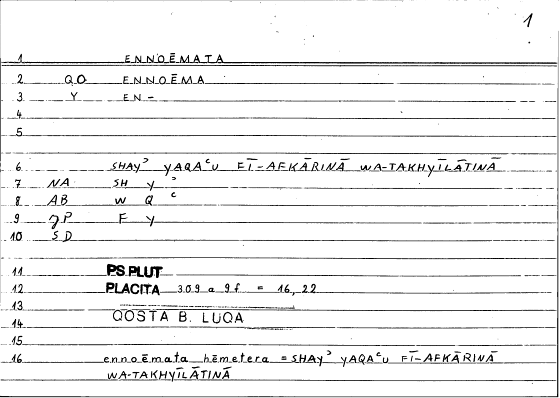 1
1 ENNOĒMATA
2 QO ENNOĒMA
3 Y EN-
4
5
6 SHAYʾ YAQAʿU FĪ-AFKĀRINĀ WA-TAKHYĪLĀTINĀ
7 NA SH Y ʾ
8 AB W Q ʿ
9 JP F Y
10 SD
11 PS.PLUT
12 PLACITA 309 a 9f = 16,22
13
14 QOSTA B. LUQA
15
16 ennoēmata hēmetera = SHAYʾ YAQAʿU FĪ-AFKĀRINĀ
WA-TAKHYĪLĀTINĀ